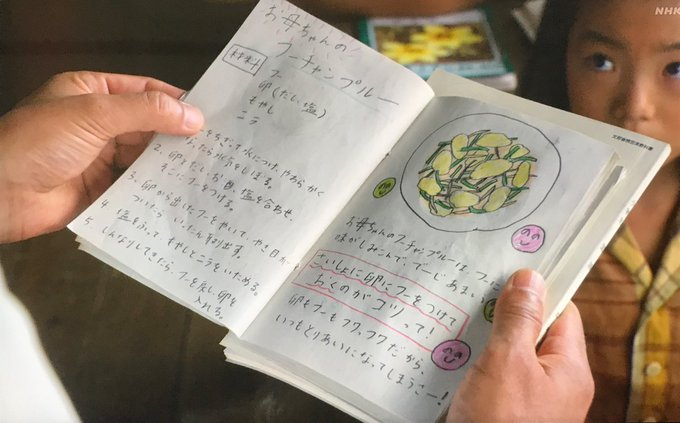 お母ちゃんの
フーチャンプルー
材料
フー
卵(だし、塩)
もやし
ニラ
1. フーをちぎって水につけ、やわらかく
なったら水気をしぼる。
2. 卵をといだし、塩を合わせ、
そこにフーをつける。
3. 卵から出したフーをやいて、やき目が
ついたら、いったん取り出す。
4. 塩をふって、もやしとニラをいためる。
5. しんなりしてきたら、フーを戻し卵を
入れる。
お母ちゃんのフーチャンプルーは、フーに
味がしみこんで、でーじあまい
さいしょに卵にフーをつけて
おくのがコツって!
卵もフーもフワフワだから、
いつもとりあいになってしまうさー!
文部省検定済教科書
NHK